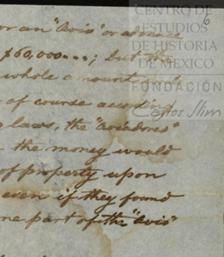 CENTRO DE
ESTUDIOS
DE HISTORIA
DE MÉXICO
FUNDACIÓN
Carlos Slim
6
or an "Avis" or advance
$60,000...; but the
whole amount
of course according
laws, the "acreedores"
the money would
of property upon
even if they found
one part of the "Avis"